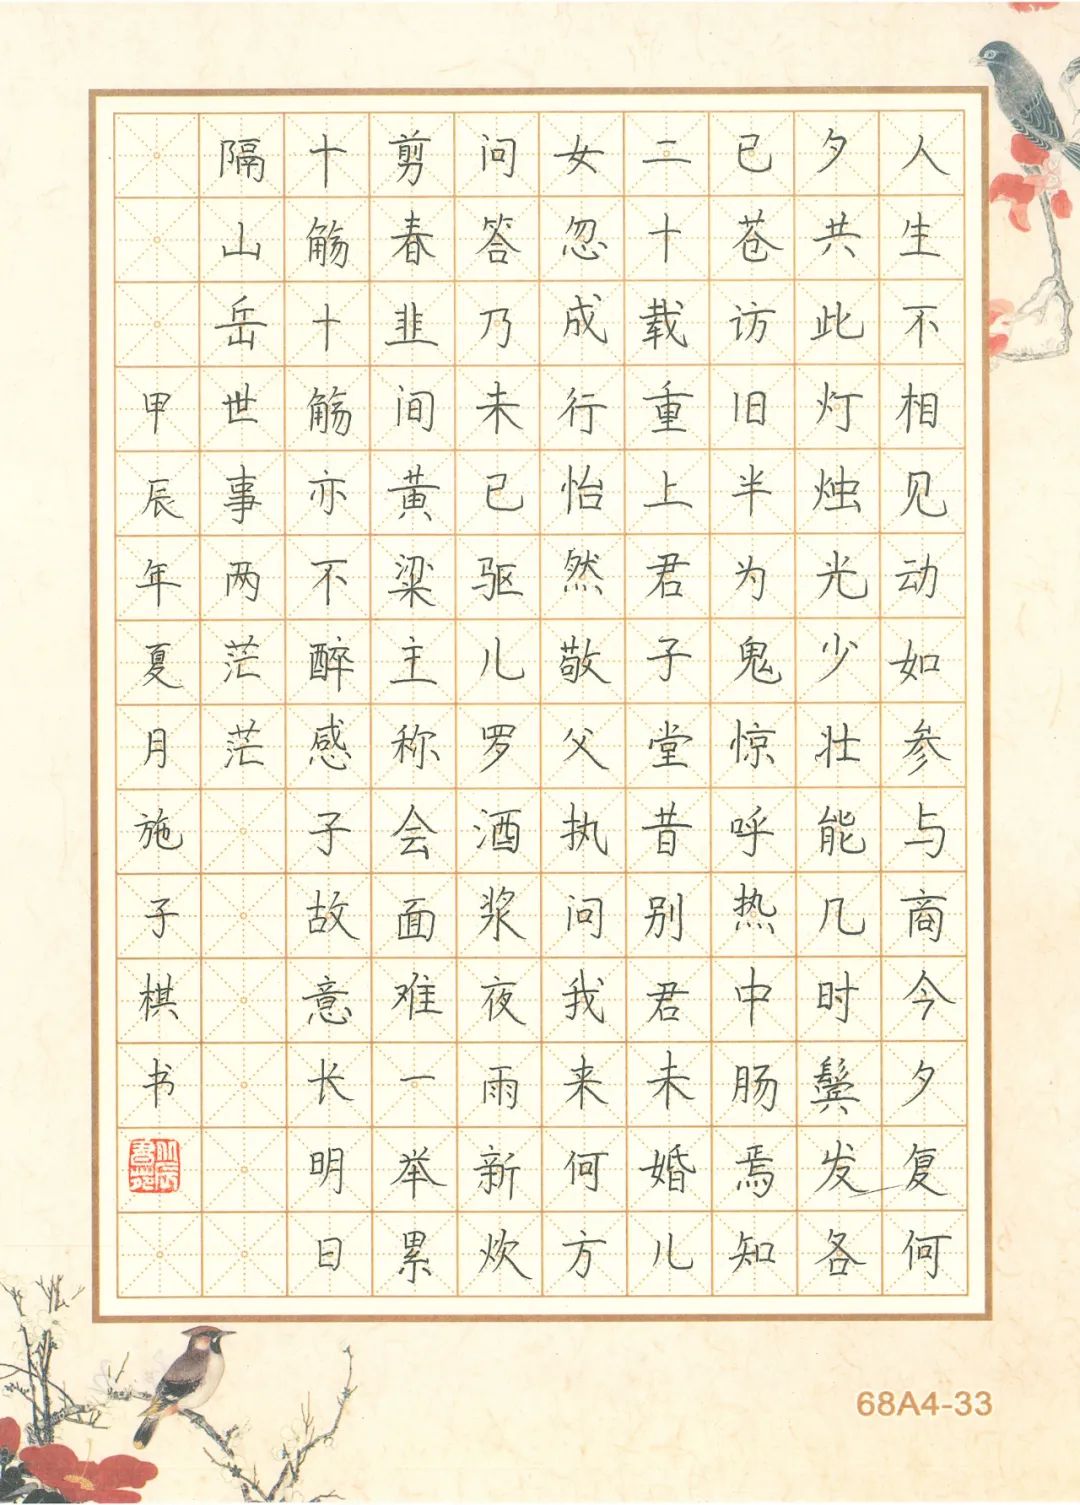 人生不相见动如参与商今夕复何
夕共此灯烛光少壮能几时鬓发各
已苍访旧半为鬼惊呼热中肠焉知
二十载重上君子堂昔别君未婚儿
女忽成行怡然敬父执问我来何方
问答乃未已驱儿罗酒浆夜雨新炊
剪春韭间黄粱主称会面难一举累
十觞十觞亦不醉感子故意长明日
隔山岳世事两茫茫
甲辰年夏月施子棋书
68A4-33